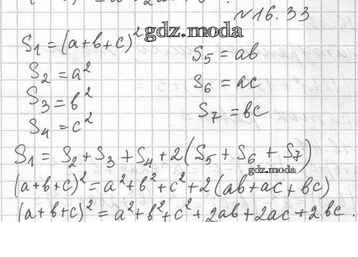 №16.33
S₁=(a+b+c)²
gdz.moda
S₂=a²
S₃=b²
S₄=c²
S₅=ab
S₆=ac
S₇=bc
S₁=S₂+S₃+S₄+2(S₅+S₆+S₇)
gdz.moda
(a+b+c)²=a²+b²+c²+2(ab+ac+bc)
(a+b+c)²=a²+b²+c²+2ab+2ac+2bc.